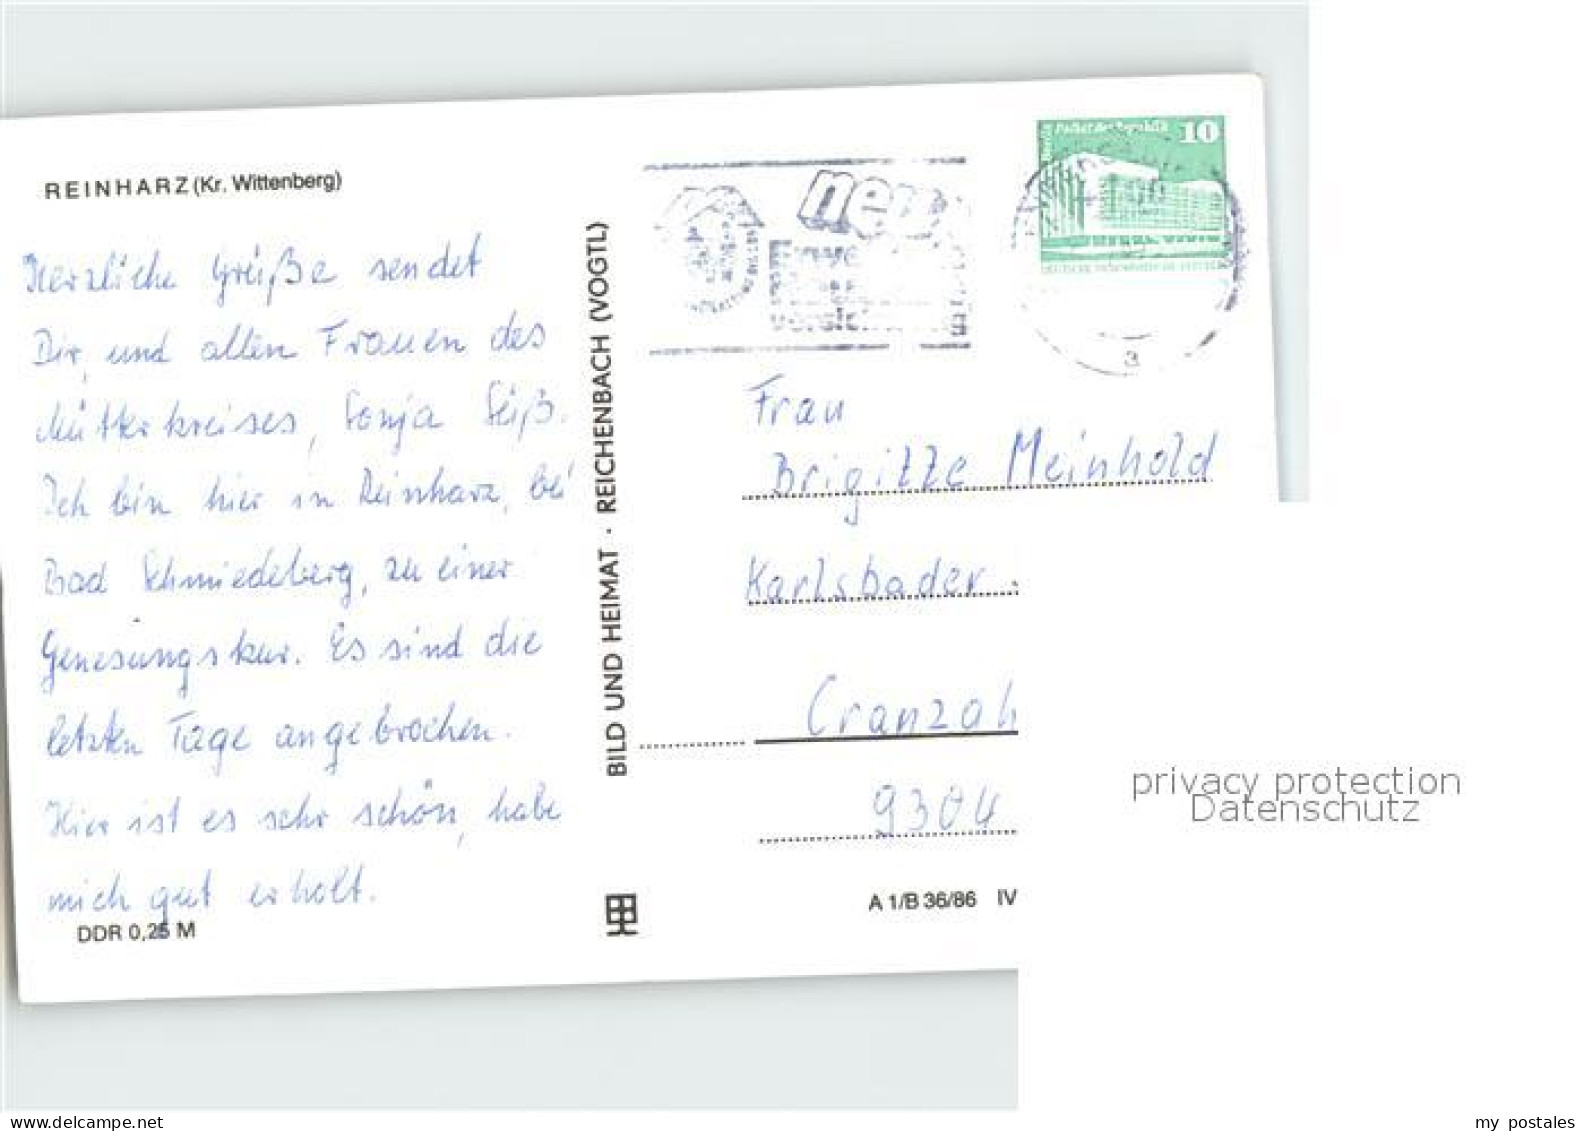 REINHARZ (Kr. Wittenberg)
Herzliche Grüße sendet
Dir, und allen Frauen des
Mütterkreises, Sonja Süß.
Ich bin hier in Reinharz, bei
Bad Schmiedeberg, zu einer
Genesungskur. Es sind die
letzten Tage angebrochen.
Hier ist es sehr schön, habe
mich gut erholt.
DDR 0,25 M
BILD UND HEIMAT · REICHENBACH (VOGTL)
Berlin
Palast der Republik 10
3
Frau
Brigitte Meinhold
Karlsbader
Cranzah
9304
A 1/B 36/86 IV
privacy protection
Datenschutz
my postales